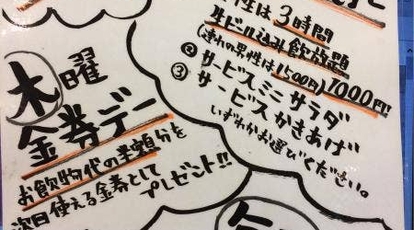 性は3時間
生ビール込み飲放題
(連れの男性は1500円)1000円!
② サービスミニサラダ
③ サービスかきあげ
いずれかお選びください。
木曜
金券デー
お飲物代の半額分を
次回使える金券として
プレゼント!!